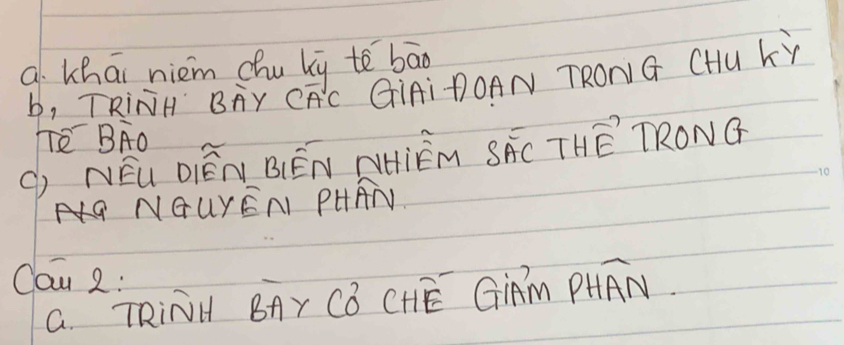 a. khái niệm chu kỳ tế bào
b, TRÌNH BÀY CÁC GIAI ĐOẠN TRONG CHU KỲ
TẾ BÀO
c) NÊU DIỄN BIẾN NHIỄM SẮC THỂ TRONG
NGUYÊN PHÂN.
Câu 2:
a. TRÌNH BÀY CƠ CHẾ GIẢM PHÂN.
10